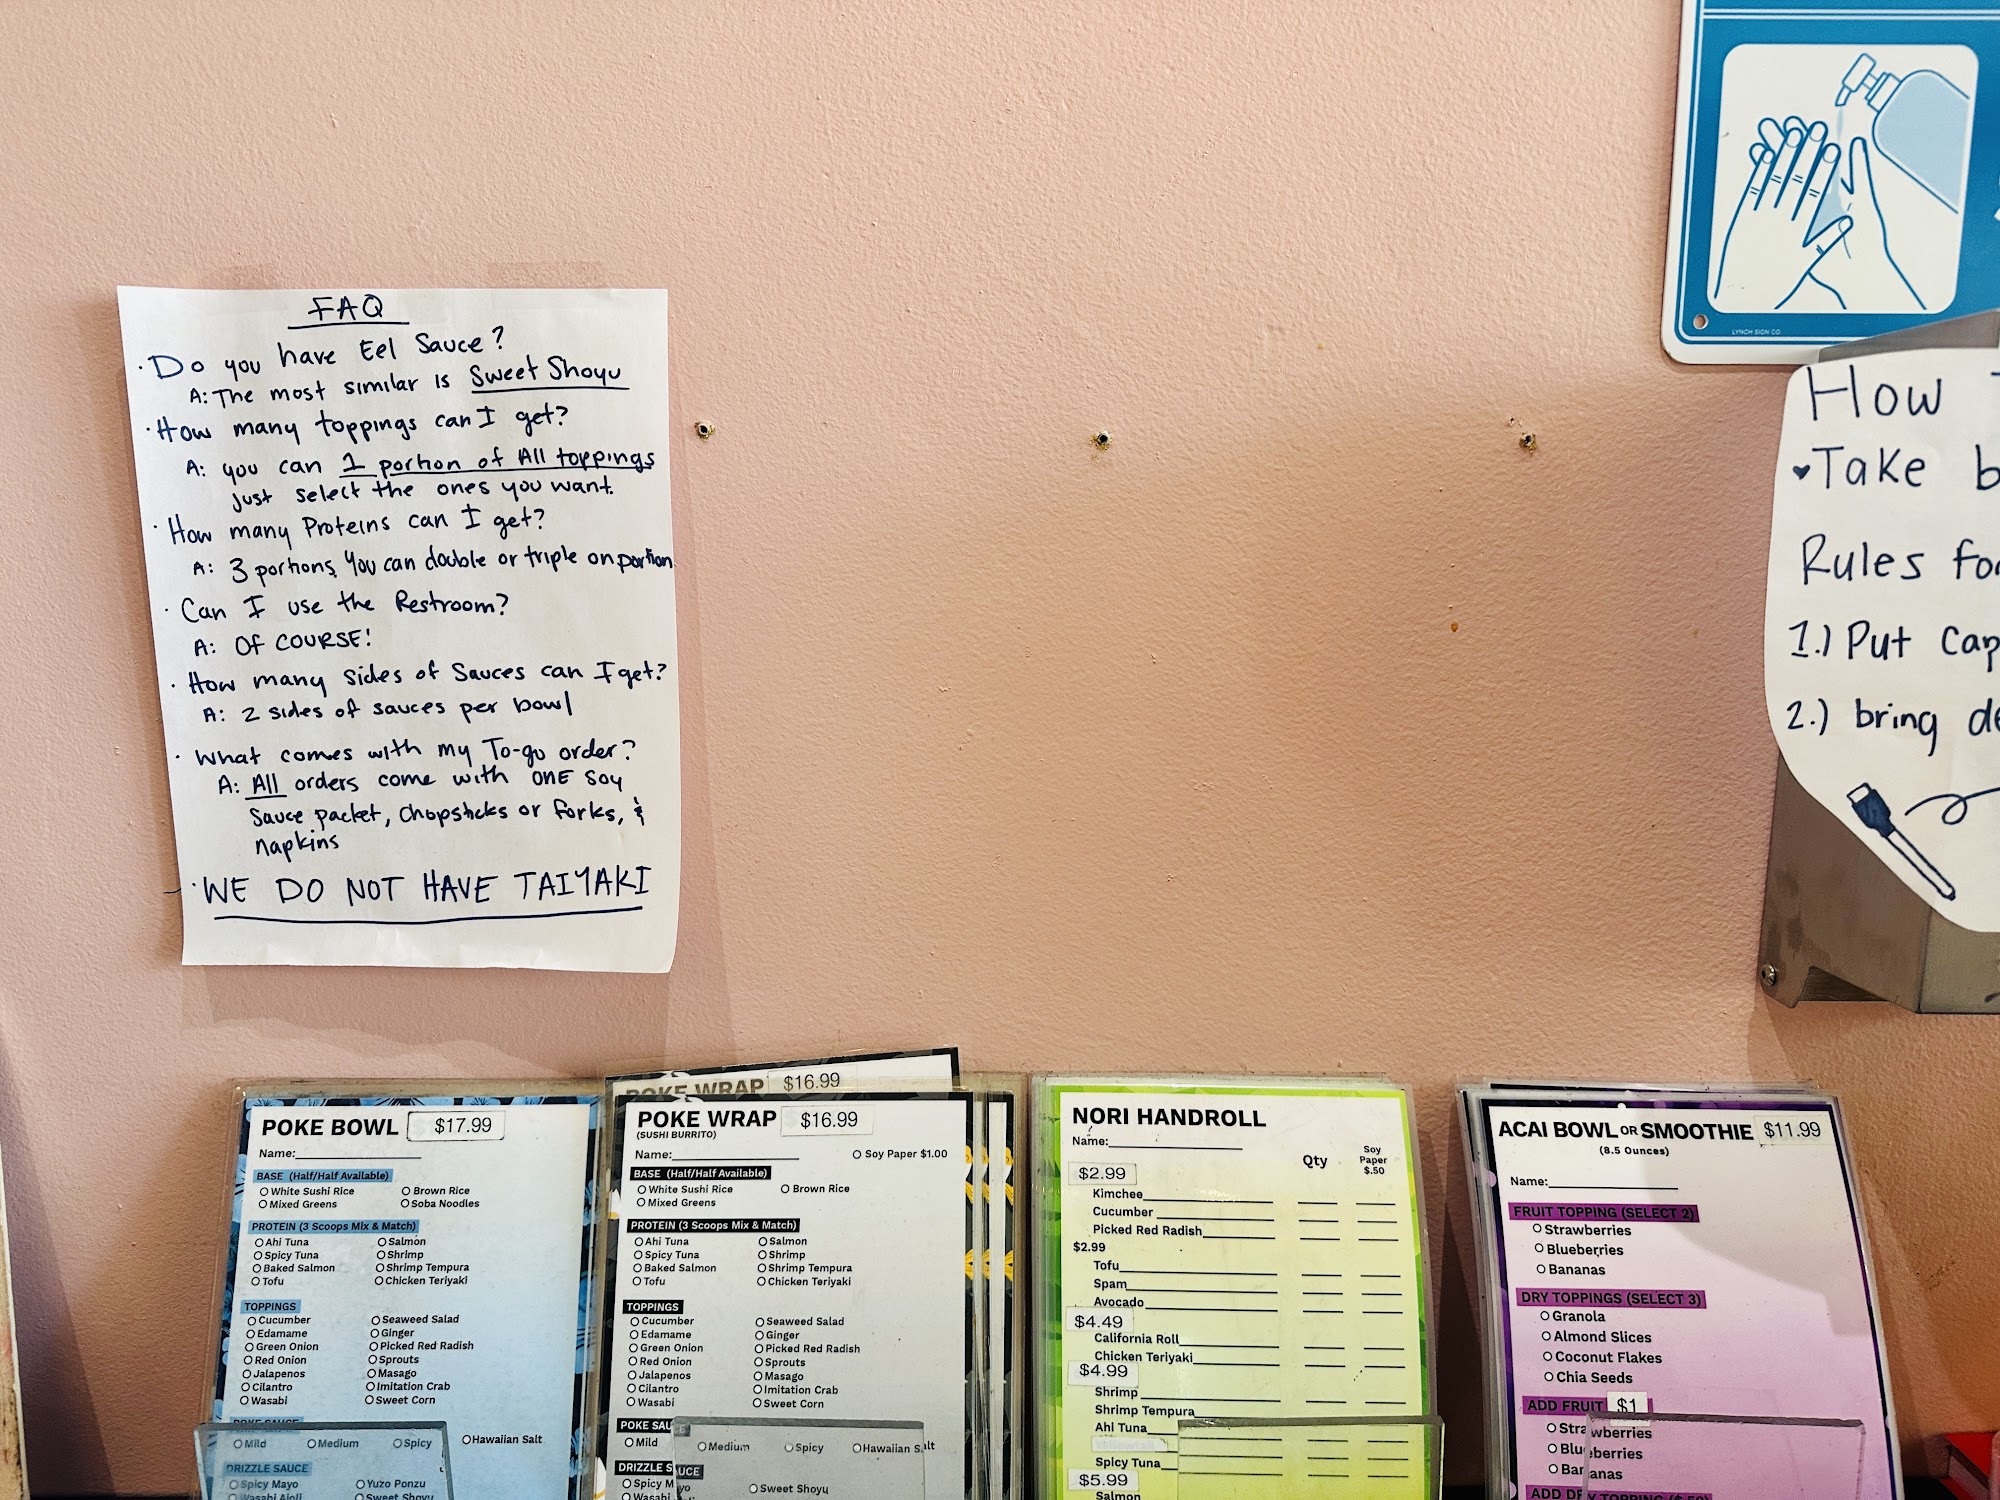 FAQ
· Do you have Eel Sauce?
A: The most similar is Sweet Shoyu
· How many toppings can I get?
A: you can 1 portion of All toppings
just select the ones you want.
· How many Proteins can I get?
A: 3 portions. You can double or triple on portion
· Can I use the Restroom?
A: OF COURSE!
· How many sides of Sauces can I get?
A: 2 sides of sauces per bowl
· What comes with my To-go order?
A: All orders come with ONE soy
sauce packet, chopsticks or forks, &
napkins
· WE DO NOT HAVE TAIYAKI
LYNCH SIGN CO.
How
♥Take
Rules
1.) Put
2.) bring
POKE BOWL $17.99
Name:
BASE (Half/Half Available)
White Sushi Rice Brown Rice
Mixed Greens Soba Noodles
PROTEIN (3 Scoops Mix & Match)
Ahi Tuna Salmon
Spicy Tuna Shrimp
Baked Salmon Shrimp Tempura
Tofu Chicken Teriyaki
TOPPINGS
Cucumber Seaweed Salad
Edamame Ginger
Green Onion Picked Red Radish
Red Onion Sprouts
Jalapenos Masago
Cilantro Imitation Crab
Wasabi Sweet Corn
POKE SAUCE
Mild Medium Spicy Hawaiian Salt
DRIZZLE SAUCE
Spicy Mayo Yuzo Ponzu
Wasabi Aioli Sweet Shoyu
POKE WRAP $16.99
POKE WRAP $16.99
(SUSHI BURRITO)
Name: Soy Paper $1.00
BASE (Half/Half Available)
White Sushi Rice Brown Rice
Mixed Greens
PROTEIN (3 Scoops Mix & Match)
Ahi Tuna Salmon
Spicy Tuna Shrimp
Baked Salmon Shrimp Tempura
Tofu Chicken Teriyaki
TOPPINGS
Cucumber Seaweed Salad
Edamame Ginger
Green Onion Picked Red Radish
Red Onion Sprouts
Jalapenos Masago
Cilantro Imitation Crab
Wasabi Sweet Corn
POKE SAUCE
Mild Medium Spicy Hawaiian Salt
DRIZZLE SAUCE
Spicy Mayo Sweet Shoyu
Wasabi
NORI HANDROLL
Name:
Qty Soy Paper $.50
$2.99
Kimchee
Cucumber
Picked Red Radish
$2.99
Tofu
Spam
Avocado
$4.49
California Roll
Chicken Teriyaki
$4.99
Shrimp
Shrimp Tempura
Ahi Tuna
Spicy Tuna
$5.99
Salmon
ACAI BOWL OR SMOOTHIE $11.99
(8.5 Ounces)
Name:
FRUIT TOPPING (SELECT 2)
Strawberries
Blueberries
Bananas
DRY TOPPINGS (SELECT 3)
Granola
Almond Slices
Coconut Flakes
Chia Seeds
ADD FRUIT $1
Strawberries
Blueberries
Bananas
ADD DRY TOPPING